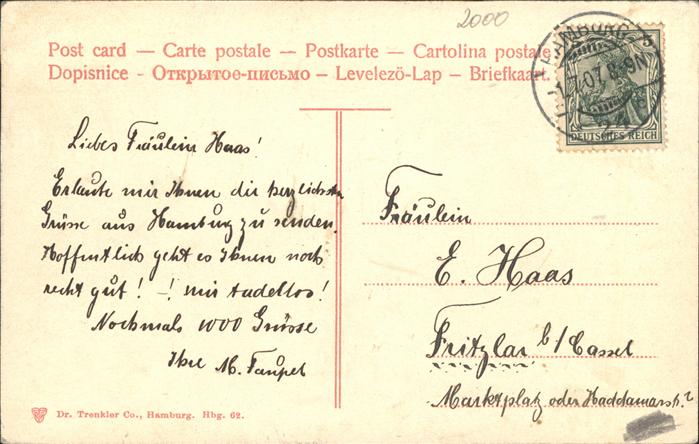 2000
Post card — Carte postale — Postkarte — Cartolina postale
Dopisnice - Открытое-письмо – Levelezö-Lap – Briefkaart.
HAMBURG
07 8-9N
5
DEUTSCHES REICH
Liebes Fräulein Haas!
Erlaube mir Ihnen die herzlichsten
Grüsse aus Hamburg zu senden.
Hoffentlich geht es Ihnen noch
recht gut! -! mir tadellos!
Nochmals 1000 Grüsse
Ihre M. Taupel
Fräulein
E. Haas
Fritzlar b/ Cassel
Marktplatz oder Haddamarstr. ?
Dr. Trenkler Co., Hamburg. Hbg. 62.